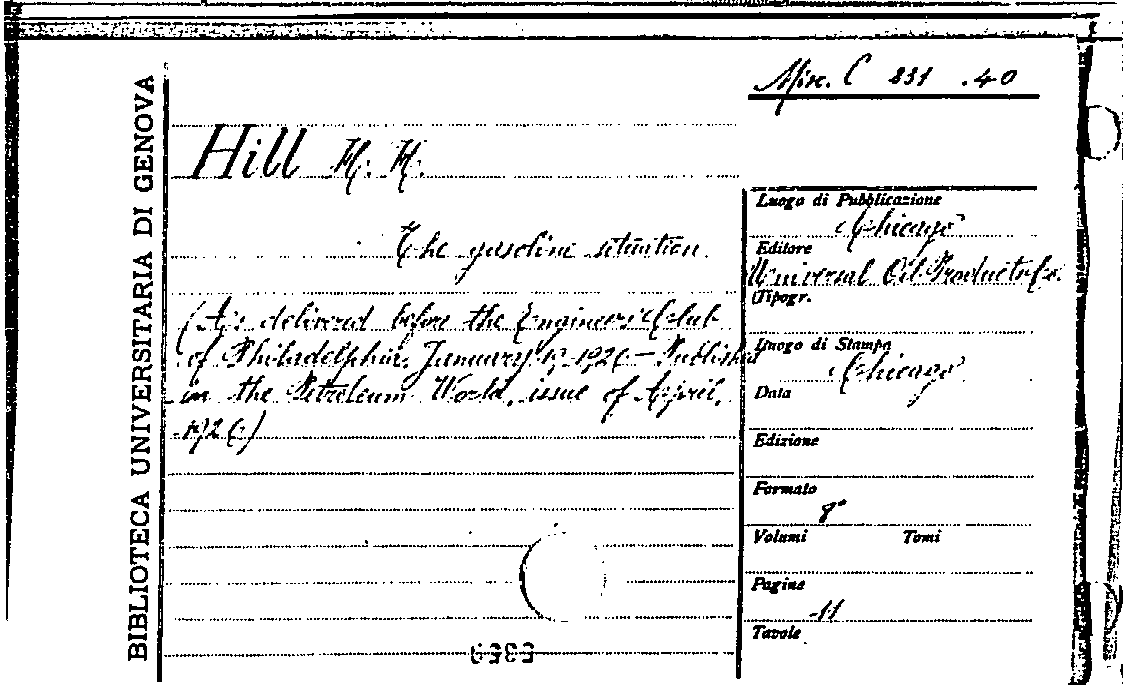 Misc. C 831 .40
BIBLIOTECA UNIVERSITARIA DI GENOVA
Hill H. H.
The gasoline situation
(As delivered before the Engineers' Club
of Philadelphia, January 19, 1926 - Published
in the Petroleum World, issue of April,
1926)
Luogo di Pubblicazione
Chicago
Editore
Universal Oil Products Co.
(Tipogr.
Luogo di Stampa
Chicago
Data
Edizione
Formato
8°
Volumi Tomi
Pagine
11
Tavole